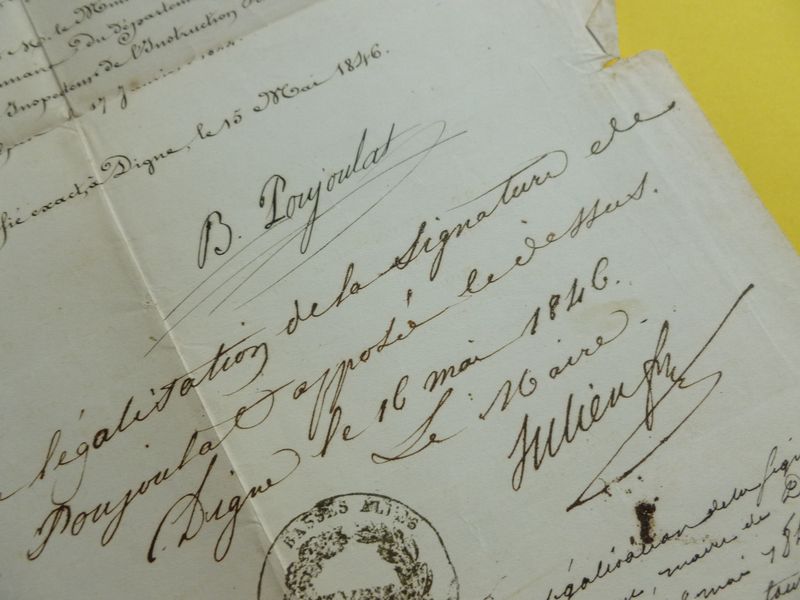 le Mini
du départem
Inspecteur de l'Instruction
17 Janvier
fié exact, à Digne, le 15 Mai 1846.
B. Poujoulat
légalisation de la signature de
Poujoulat apposée ci dessus.
Digne le 16 mai 1846.
Le Maire
Julien fils
BASSES ALPES
égalisation de la sign
maire de D
mai 184
tout